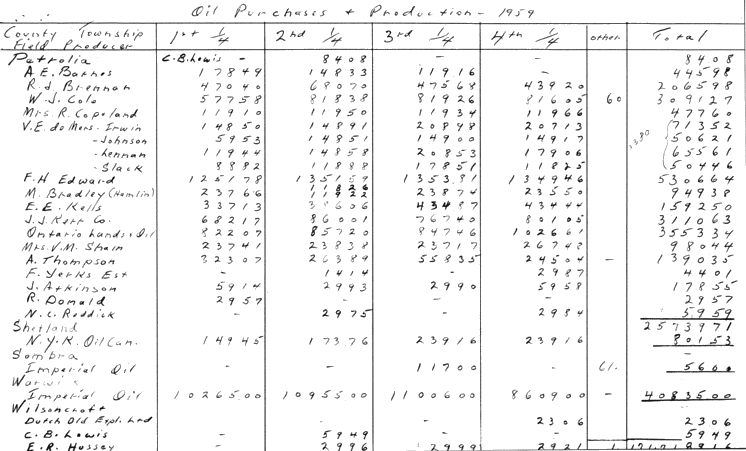 Oil Purchases + Production - 1959
County Township 1st 1/4 2nd 1/4 3rd 1/4 4th 1/4 other Total
Field Producer
Petrolia C.B. Lewis - 8408 - 8408
A.E. Barnes 17849 14833 11916 - 44598
R.J. Brennan 47040 68070 47568 43920 206598
W.J. Cole 57758 81838 81926 81605 60 309127
Mrs. R. Copeland 11910 11950 11934 11966 47760
V.E. de Mers. Irwin 14850 14891 20898 20713 71352
- Johnson 5953 14851 14900 14917 50621
- Lennan 11944 14858 20853 17906 65561
- Slack 8882 11888 17851 11825 50446
F.H. Edward 125178 135159 135381 134946 530664
M. Bradley (Hamlin) 23766 23874 23550 94938
E.E. Kells 33713 38606 43487 43444 159250
J.J. Kerr Co. 68217 86001 76740 80105 311063
Ontario Lands + Oil 82207 85720 84746 102661 355334
Mrs. V.M. Sham 23741 23838 23717 26748 98044
A. Thompson 32307 26389 55835 24504 - 139035
F. Yerks Est - 1414 - 2987 4401
J. Atkinson 5914 2993 2990 5958 17855
R. Donald 2957 - - - 2957
N.C. Reddick - 2975 - 2984 5959
Shetland 2573971
N.Y.K. Oil Can. 14945 17376 23916 23916 80153
Sombra -
Imperial Oil - - 11700 - Cl. 5600
Warwick
Imperial Oil 1026500 1095500 1100600 860900 - 4083500
Wilsoncroft
Dutch Old Expl. Ltd 2306 2306
C.B. Lewis - 5949 - - 5949
E.R. Hussey - 2996 2999 2921